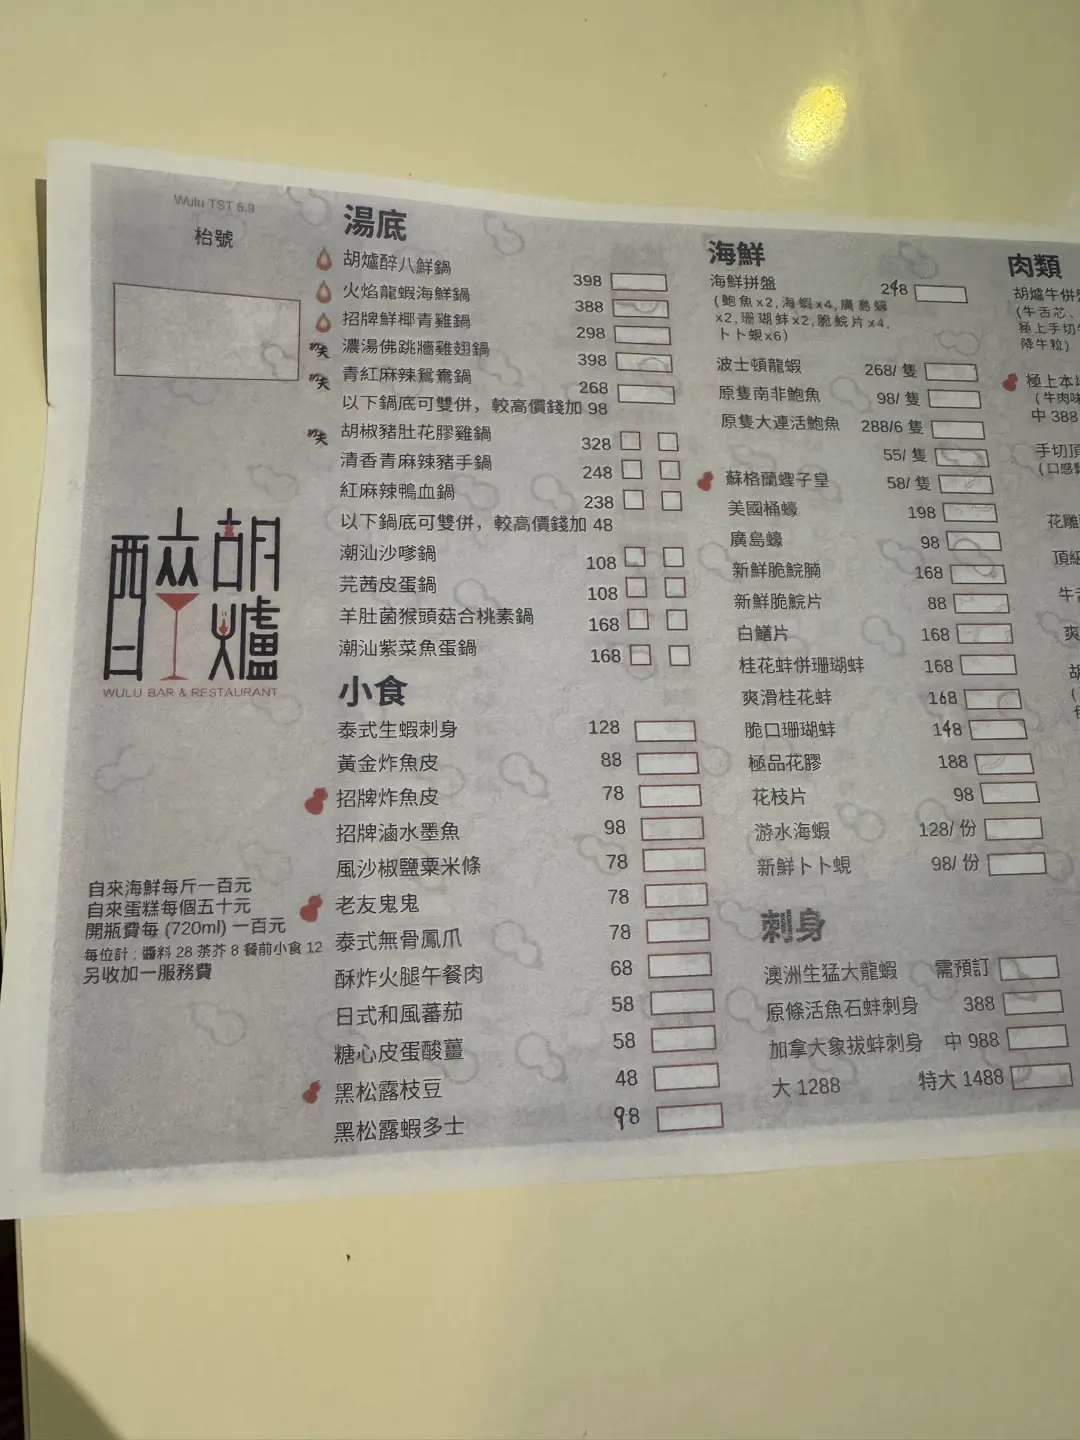 Wulu TST 6.9
枱號
醉胡爐
WULU BAR & RESTAURANT
自來海鮮每斤一百元
自來蛋糕每個五十元
開瓶費每 (720ml) 一百元
每位計 : 醬料 28 茶芥 8 餐前小食 12
另收加一服務費
湯底
胡爐醉八鮮鍋 398
火焰龍蝦海鮮鍋 388
招牌鮮椰青雞鍋 298
功夫 濃湯佛跳牆雞翅鍋 398
功夫 青紅麻辣鴛鴦鍋 268
以下鍋底可雙併，較高價錢加 98
功夫 胡椒豬肚花膠雞鍋 328
清香青麻辣豬手鍋 248
紅麻辣鴨血鍋 238
以下鍋底可雙併，較高價錢加 48
潮汕沙嗲鍋 108
芫茜皮蛋鍋 108
羊肚菌猴頭菇合桃素鍋 168
潮汕紫菜魚蛋鍋 168
小食
泰式生蝦刺身 128
黃金炸魚皮 88
招牌炸魚皮 78
招牌滷水墨魚 98
風沙椒鹽粟米條 78
老友鬼鬼 78
泰式無骨鳳爪 78
酥炸火腿午餐肉 68
日式和風蕃茄 58
糖心皮蛋酸薑 58
黑松露枝豆 48
黑松露蝦多士 98
海鮮
海鮮拼盤 298
(鮑魚x2,海蝦x4,廣島蠔
x2,珊瑚蚌x2,脆鯇片x4,
卜卜蜆x6)
波士頓龍蝦 268/ 隻
原隻南非鮑魚 98/ 隻
原隻大連活鮑魚 288/6 隻
55/ 隻
蘇格蘭蟶子皇 58/ 隻
美國桶蠔 198
廣島蠔 98
新鮮脆鯇腩 168
新鮮脆鯇片 88
白鱔片 168
桂花蚌併珊瑚蚌 168
爽滑桂花蚌 168
脆口珊瑚蚌 148
極品花膠 188
花枝片 98
游水海蝦 128/ 份
新鮮卜卜蜆 98/ 份
刺身
澳洲生猛大龍蝦 需預訂
原條活魚石蚌刺身 388
加拿大象拔蚌刺身 中 988
大 1288 特大 1488
肉類
胡爐牛併
(牛舌芯、
極上手切
降牛粒)
極上本
(牛肉味
中 388
手切頂
(口感
花雕
頂級
牛
爽